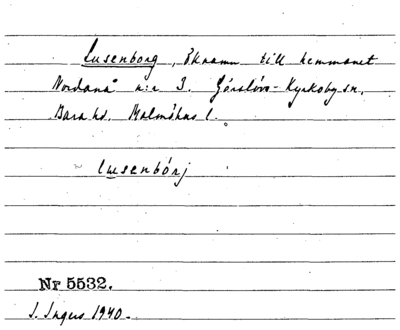 Lusenborg, öknamn till hemmanet
Nordanå n:r 3. Görslövs-Kyrkoby sn.
Bara hd. Malmöhus l.
~ lusenbórj
Nr 5532.
I. Ingers 1940.